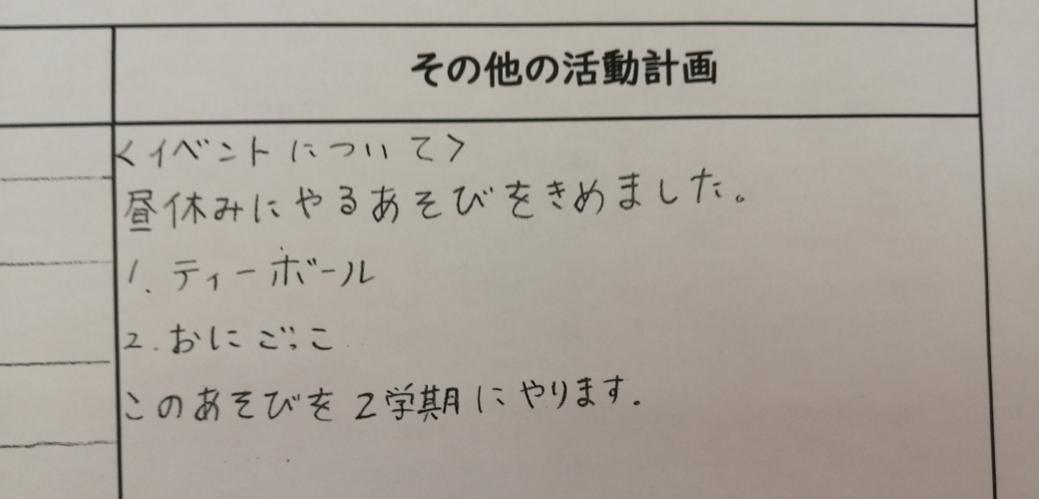 その他の活動計画
<イベントについて>
昼休みにやるあそびをきめました。
1. ティーボール
2. おにごっこ
このあそびを2学期にやります.